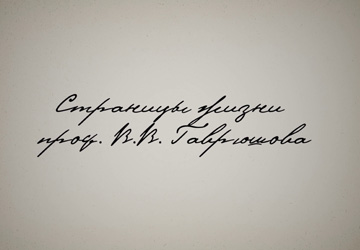 Страницы жизни
проф. В.В. Гаврюшова